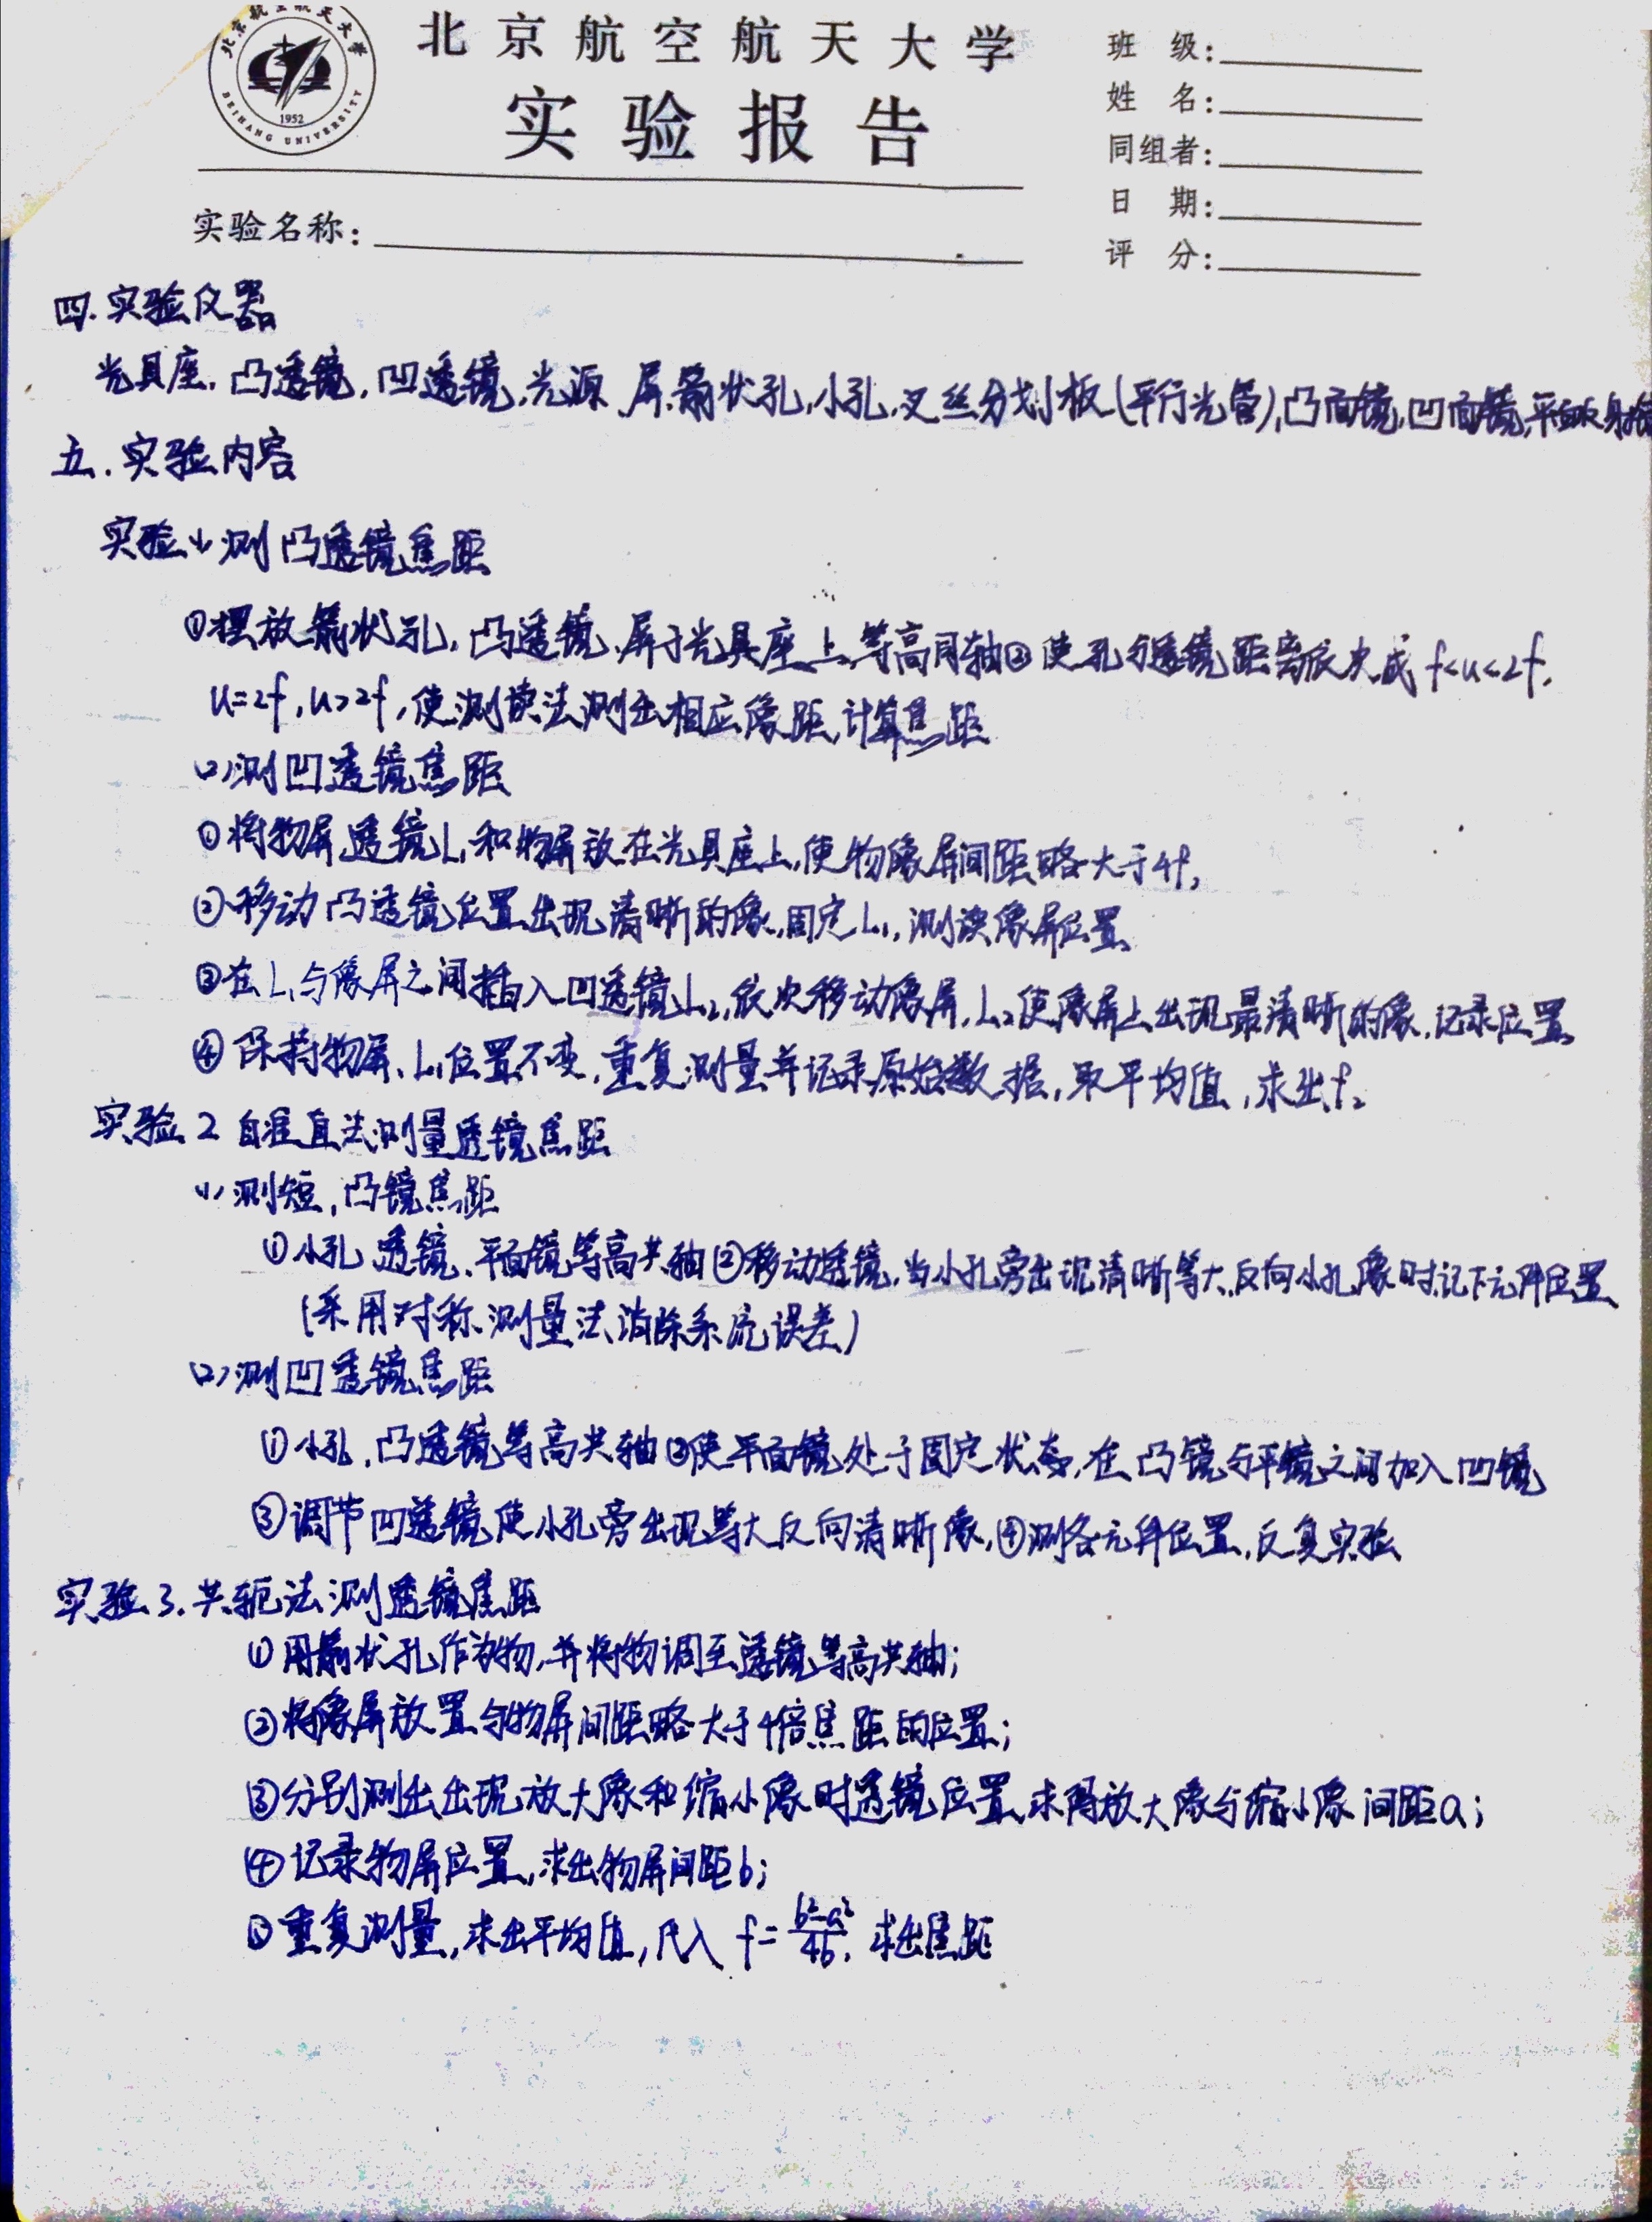 北京航空航天大学
BEIHANG UNIVERSITY
1952
北京航空航天大学
实验报告
班 级:
姓 名:
同组者:
日 期:
评 分:
实验名称:
四.实验仪器
光具座,凸透镜,凹透镜,光源、屏、箭状孔,小孔,叉丝分划板(平行光管),凸面镜,凹面镜,平面反射镜
五.实验内容
实验(1)测凸透镜焦距
①摆放箭状孔,凸透镜、屏于光具座上,等高同轴②使孔与透镜距离依次成f<u<2f,
u=2f,u>2f,使测读法测出相应像距,计算焦距
(2)测凹透镜焦距
①将物屏,透镜L₁和物屏放在光具座上,使物像屏间距略大于4f,
②移动凸透镜位置,出现清晰的像,固定L₁,测读像屏位置
③在L₁与像屏之间插入凹透镜L₂,依次移动像屏,L₂使像屏上出现最清晰的像,记录位置
④保持物屏、L₁位置不变,重复测量并记录原始数据,取平均值,求出f₂
实验2 自准直法测量透镜焦距
(1)测短,凸镜焦距
①小孔、透镜、平面镜等高共轴②移动透镜,当小孔旁出现清晰等大反向小孔像时,记下元件位置
(采用对称测量法消除系统误差)
(2)测凹透镜焦距
①小孔,凸透镜等高共轴②使平面镜处于固定状态,在凸镜与平镜之间加入凹镜
③调节凹透镜使小孔旁出现等大反向清晰像,④测各元件位置,反复实验
实验3.共轭法测透镜焦距
①用箭状孔作为物,并将物调至透镜等高共轴;
②将像屏放置与物屏间距略大于4倍焦距的位置;
③分别测出出现放大像和缩小像时透镜位置,求得放大像与缩小像间距a;
④记录物屏位置,求出物屏间距b;
⑤重复测量,求出平均值,代入 f=\frac{b²-a²}{4b}, 求出焦距